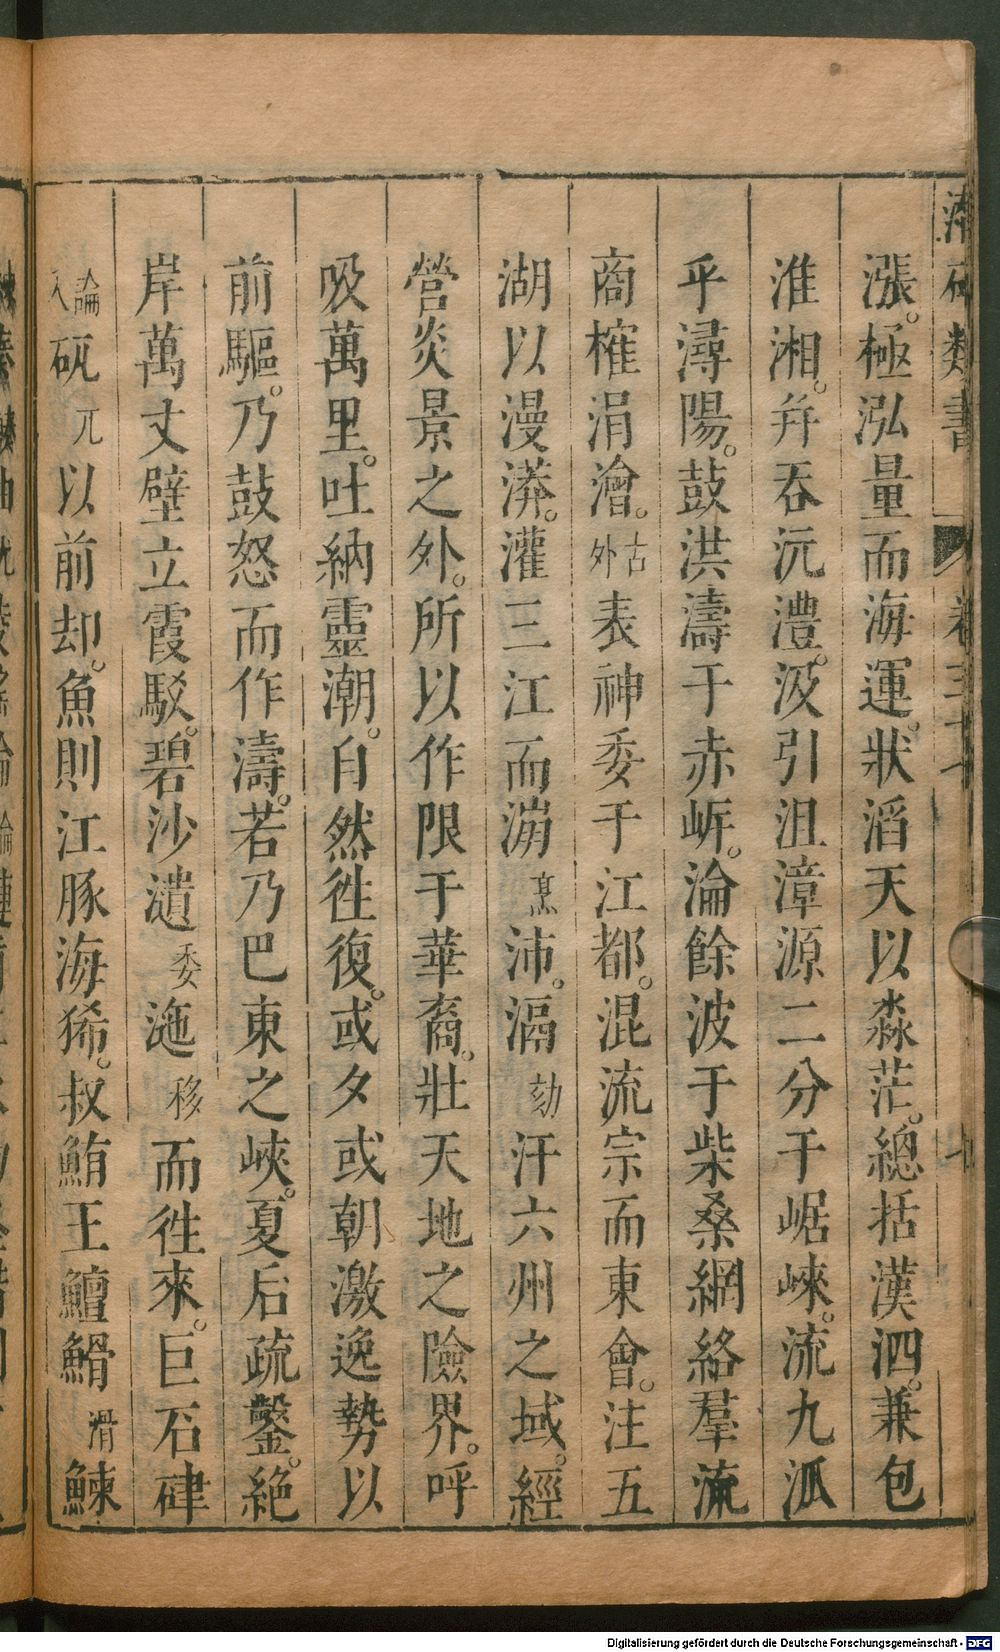 類書
漲。極泓量而海運。狀滔天以淼茫。總括漢泗。兼包
淮湘。幷吞沅澧。汲引沮漳。源二分于崌崍。流九㲿
乎潯陽。鼓洪濤于赤岍。淪餘波于柴桑。網絡羣流
商榷涓澮。古外表神委于江都。混流宗而東會。注五
湖以漫漭。灌三江而漰烹沛。滆劾汗六州之域。經
營炎景之外。所以作限于華裔。壯天地之險界。呼
吸萬里。吐納靈潮。自然徃復。或夕或朝。激逸勢以
前驅。乃鼓怒而作濤。若乃巴東之峽。夏后疏鑿。絕
岸萬丈。壁立霞駁。碧沙瀢委迤移而徃來。巨石硉
論入矹兀以前却。魚則江豚海狶。叔鮪王鱣䱻滑鰊
Digitalisierung gefördert durch die Deutsche Forschungsgemeinschaft - DFG